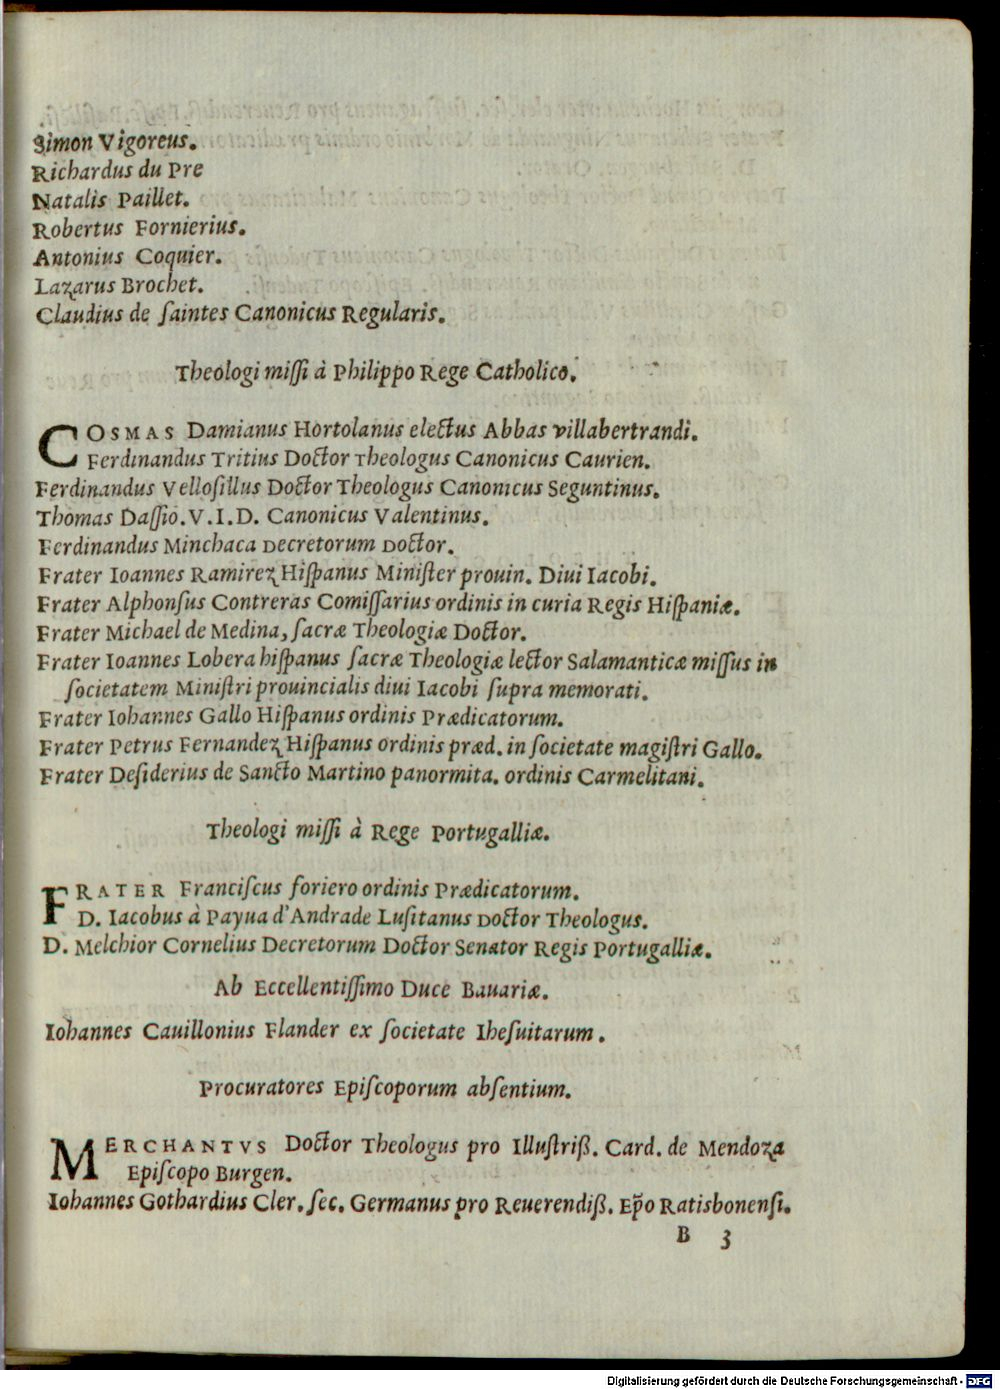 Simon Vigoreus.
Richardus du Pre
Natalis Paillet.
Robertus Fornierius.
Antonius Coquier.
Lazarus Brochet.
Claudius de ſaintes Canonicus Regularis.
Theologi miſſi à Philippo Rege Catholico.
COSMAS Damianus Hortolanus electus Abbas villabertrandi.
Ferdinandus Tritius Doctor Theologus Canonicus Caurien.
Ferdinandus Velloſillus Doctor Theologus Canonicus Seguntinus.
Thomas Daſſio. V. I. D. Canonicus Valentinus.
Ferdinandus Minchaca Decretorum Doctor.
Frater Ioannes Ramirez Hiſpanus Miniſter prouin. Diui Iacobi.
Frater Alphonſus Contreras Comiſſarius ordinis in curia Regis Hiſpaniæ.
Frater Michael de Medina, ſacræ Theologiæ Doctor.
Frater Ioannes Lobera hiſpanus ſacræ Theologiæ lector Salamanticæ miſſus in
ſocietatem Miniſtri prouincialis diui Iacobi ſupra memorati.
Frater Iohannes Gallo Hiſpanus ordinis Prædicatorum.
Frater Petrus Fernandez Hiſpanus ordinis præd. in ſocietate magiſtri Gallo.
Frater Deſiderius de Sancto Martino panormita. ordinis Carmelitani.
Theologi miſſi à Rege Portugalliæ.
FRATER Franciſcus foriero ordinis Prædicatorum.
D. Iacobus à Payua d'Andrade Luſitanus Doctor Theologus.
D. Melchior Cornelius Decretorum Doctor Senator Regis Portugalliæ.
Ab Eccellentiſſimo Duce Bauariæ.
Iohannes Cauillonius Flander ex ſocietate Iheſuitarum.
Procuratores Epiſcoporum abſentium.
MERCHANTVS Doctor Theologus pro Illuſtriß. Card. de Mendoza
Epiſcopo Burgen.
Iohannes Gothardius Cler. ſec. Germanus pro Reuerendiß. Ep̃o Ratisbonenſi.
B 3
Digitalisierung gefördert durch die Deutsche Forschungsgemeinschaft - DFG